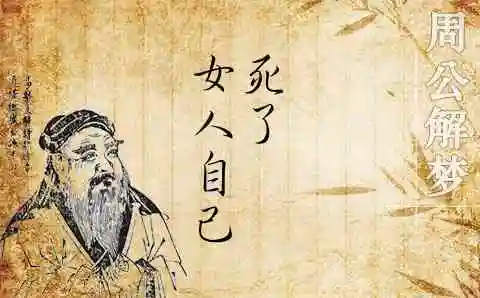 周公解梦
死了
女人自己